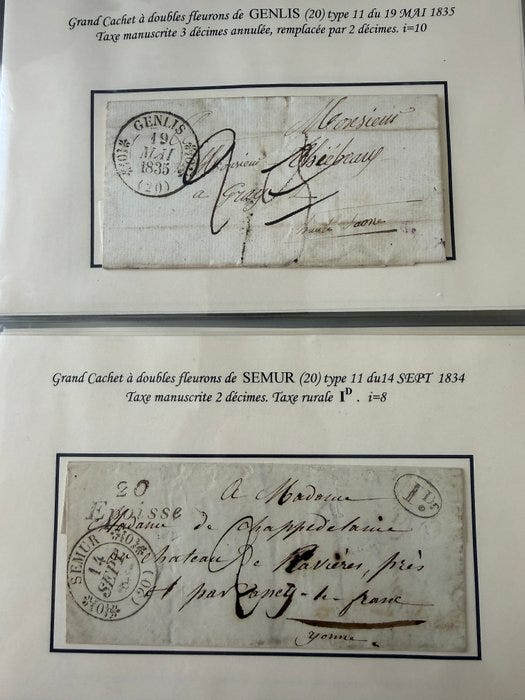 Grand Cachet à doubles fleurons de GENLIS (20) type 11 du 19 MAI 1835
Taxe manuscrite 3 décimes annulée, remplacée par 2 décimes. i=10
GENLIS
19
MAI
1835
(20)
Monsieur
Monsieur Thiébeaux
a Gray
haute Saone
2
Grand Cachet à doubles fleurons de SEMUR (20) type 11 du14 SEPT 1834
Taxe manuscrite 2 décimes. Taxe rurale I D . i=8
20
Epoisse
A Madame
Madame de Chappedelaine
chateau de Ravières, près
et par ancy-le-franc
yonne
1 D
SEMUR
14
SEPT
(20)
2